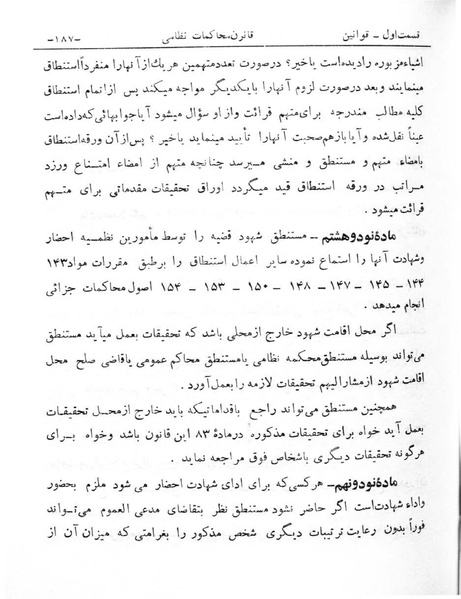 قسمت اول ـ قوانین    قانون محاکمات نظامی    ـ۱۸۷ـ
اشیاء مزبوره را دیده است یا خیر؟ در صورت تعدد متهمین هر یک از آنها را منفرداً استنطاق
مینمایند و بعد در صورت لزوم آنها را با یکدیگر مواجه میکند پس از اتمام استنطاق
کلیه مطالب مندرجه برای متهم قرائت و از او سؤال میشود آیا جوابهائی که داده است
عیناً نقل شده و آیا باز هم صحبت آنها را تأیید مینماید یا خیر؟ پس از آن ورقه استنطاق
بامضاء متهم و مستنطق و منشی میرسد چنانچه متهم از امضاء امتناع ورزد
مراتب در ورقه استنطاق قید میگردد اوراق تحقیقات مقدماتی برای متهم
قرائت میشود.
مادهٔ نود و هشتم ـ مستنطق شهود قضیه را توسط مأمورین نظمیه احضار
و شهادت آنها را استماع نموده سایر اعمال استنطاق را برطبق مقررات مواد ۱۴۳
۱۴۴ ـ ۱۴۵ ـ ۱۴۷ ـ ۱۴۸ ـ ۱۵۰ ـ ۱۵۳ ـ ۱۵۴ اصول محاکمات جزائی
انجام میدهد.
اگر محل اقامت شهود خارج از محلی باشد که تحقیقات بعمل میآید مستنطق
می‌تواند بوسیله مستنطق محکمه نظامی یا مستنطق محاکم عمومی یا قاضی صلح محل
اقامت شهود از مشارالیهم تحقیقات لازمه را بعمل آورد.
همچنین مستنطق می‌تواند راجع باقداماتیکه باید خارج از محل تحقیقات
بعمل آید خواه برای تحقیقات مذکوره در مادهٔ ۸۳ این قانون باشد و خواه برای
هرگونه تحقیقات دیگری باشخاص فوق مراجعه نماید.
مادهٔ نود و نهم ـ هر کسی که برای ادای شهادت احضار می شود ملزم بحضور
و اداء شهادت است اگر حاضر نشود مستنطق نظر بتقاضای مدعی العموم می‌تواند
فوراً بدون رعایت ترتیبات دیگری شخص مذکور را بغرامتی که میزان آن از